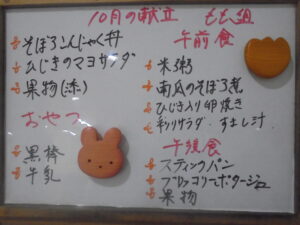 10月の献立 もも組
そぼろこんにゃく丼
ひじきのマヨサラダ
果物(添)
おやつ
黒棒
牛乳
午前食
米粥
南瓜のそぼろ煮
ひじき入り卵焼き
サラダ すまし汁
午後食
スティックパン
ブロッコリーポタージュ
果物